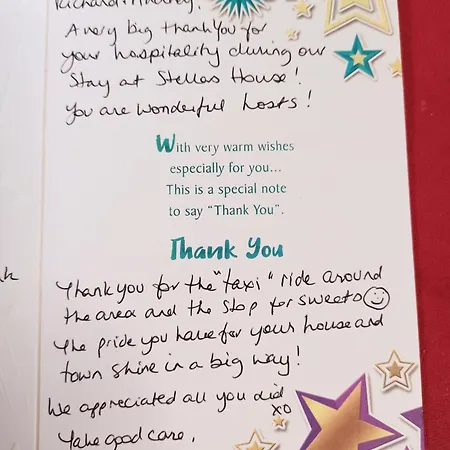 Richard + Audrey,
A very big thank you for
your hospitality during our
Stay at Stellas House!
You are wonderful hosts!
With very warm wishes
especially for you...
This is a special note
to say "Thank You".
Thank You
Thank you for the "taxi" ride around
the area and the stop for sweets
The pride you have for your house and
town shine in a big way!
We appreciated all you did
xo
Take good care,